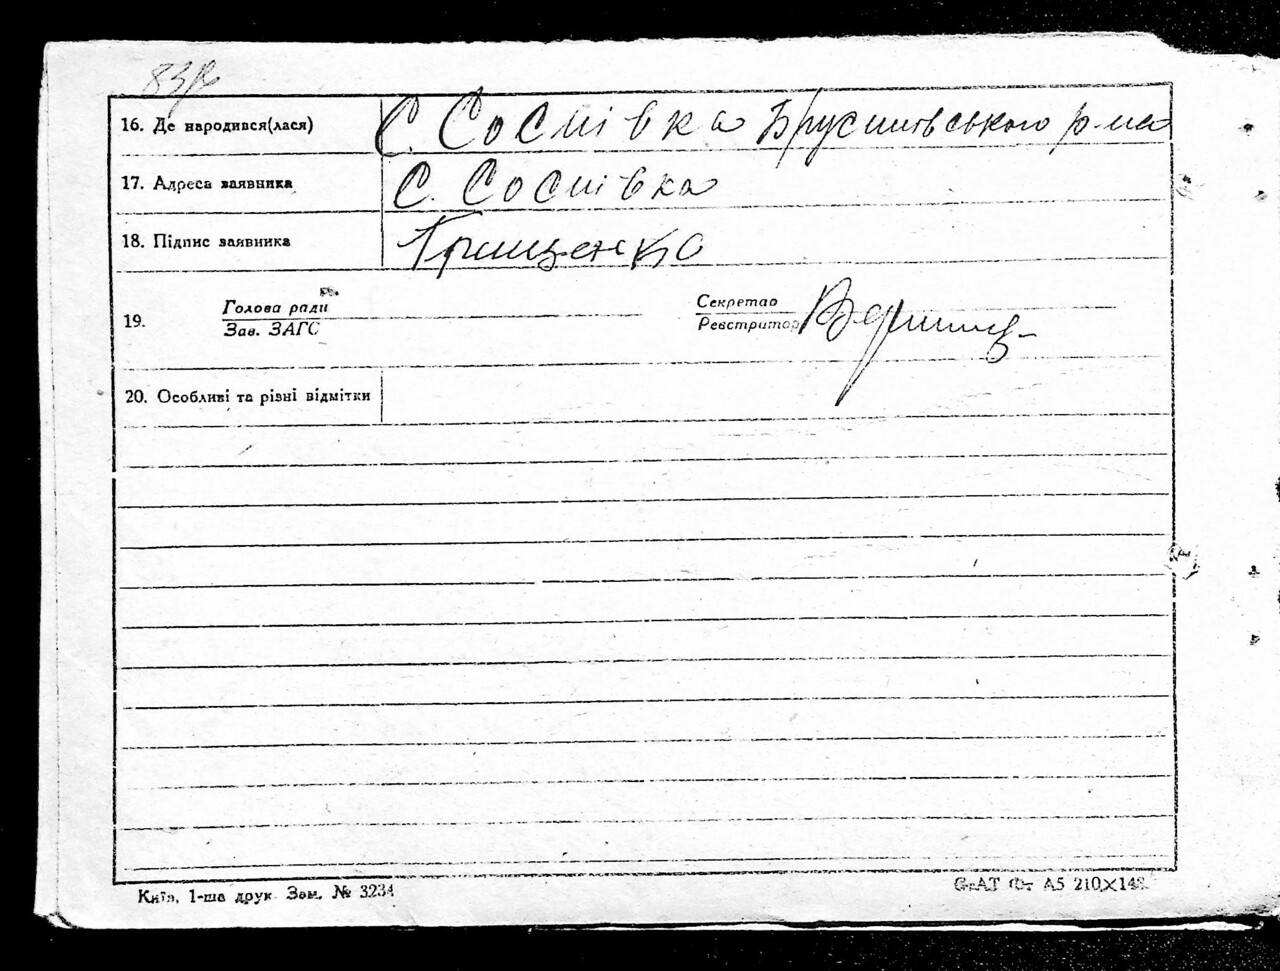 83
16. Де народився(лася) С. Соснівка Брусилівського р-на
17. Адреса заявника С. Соснівка
18. Підпис заявника Грищенко
19. Голова ради Секретар
Зав. ЗАГС Реєстратор
20. Особливі та різні відмітки
Київ, 1-ша друк. Зам. № 3234 А5 210×148